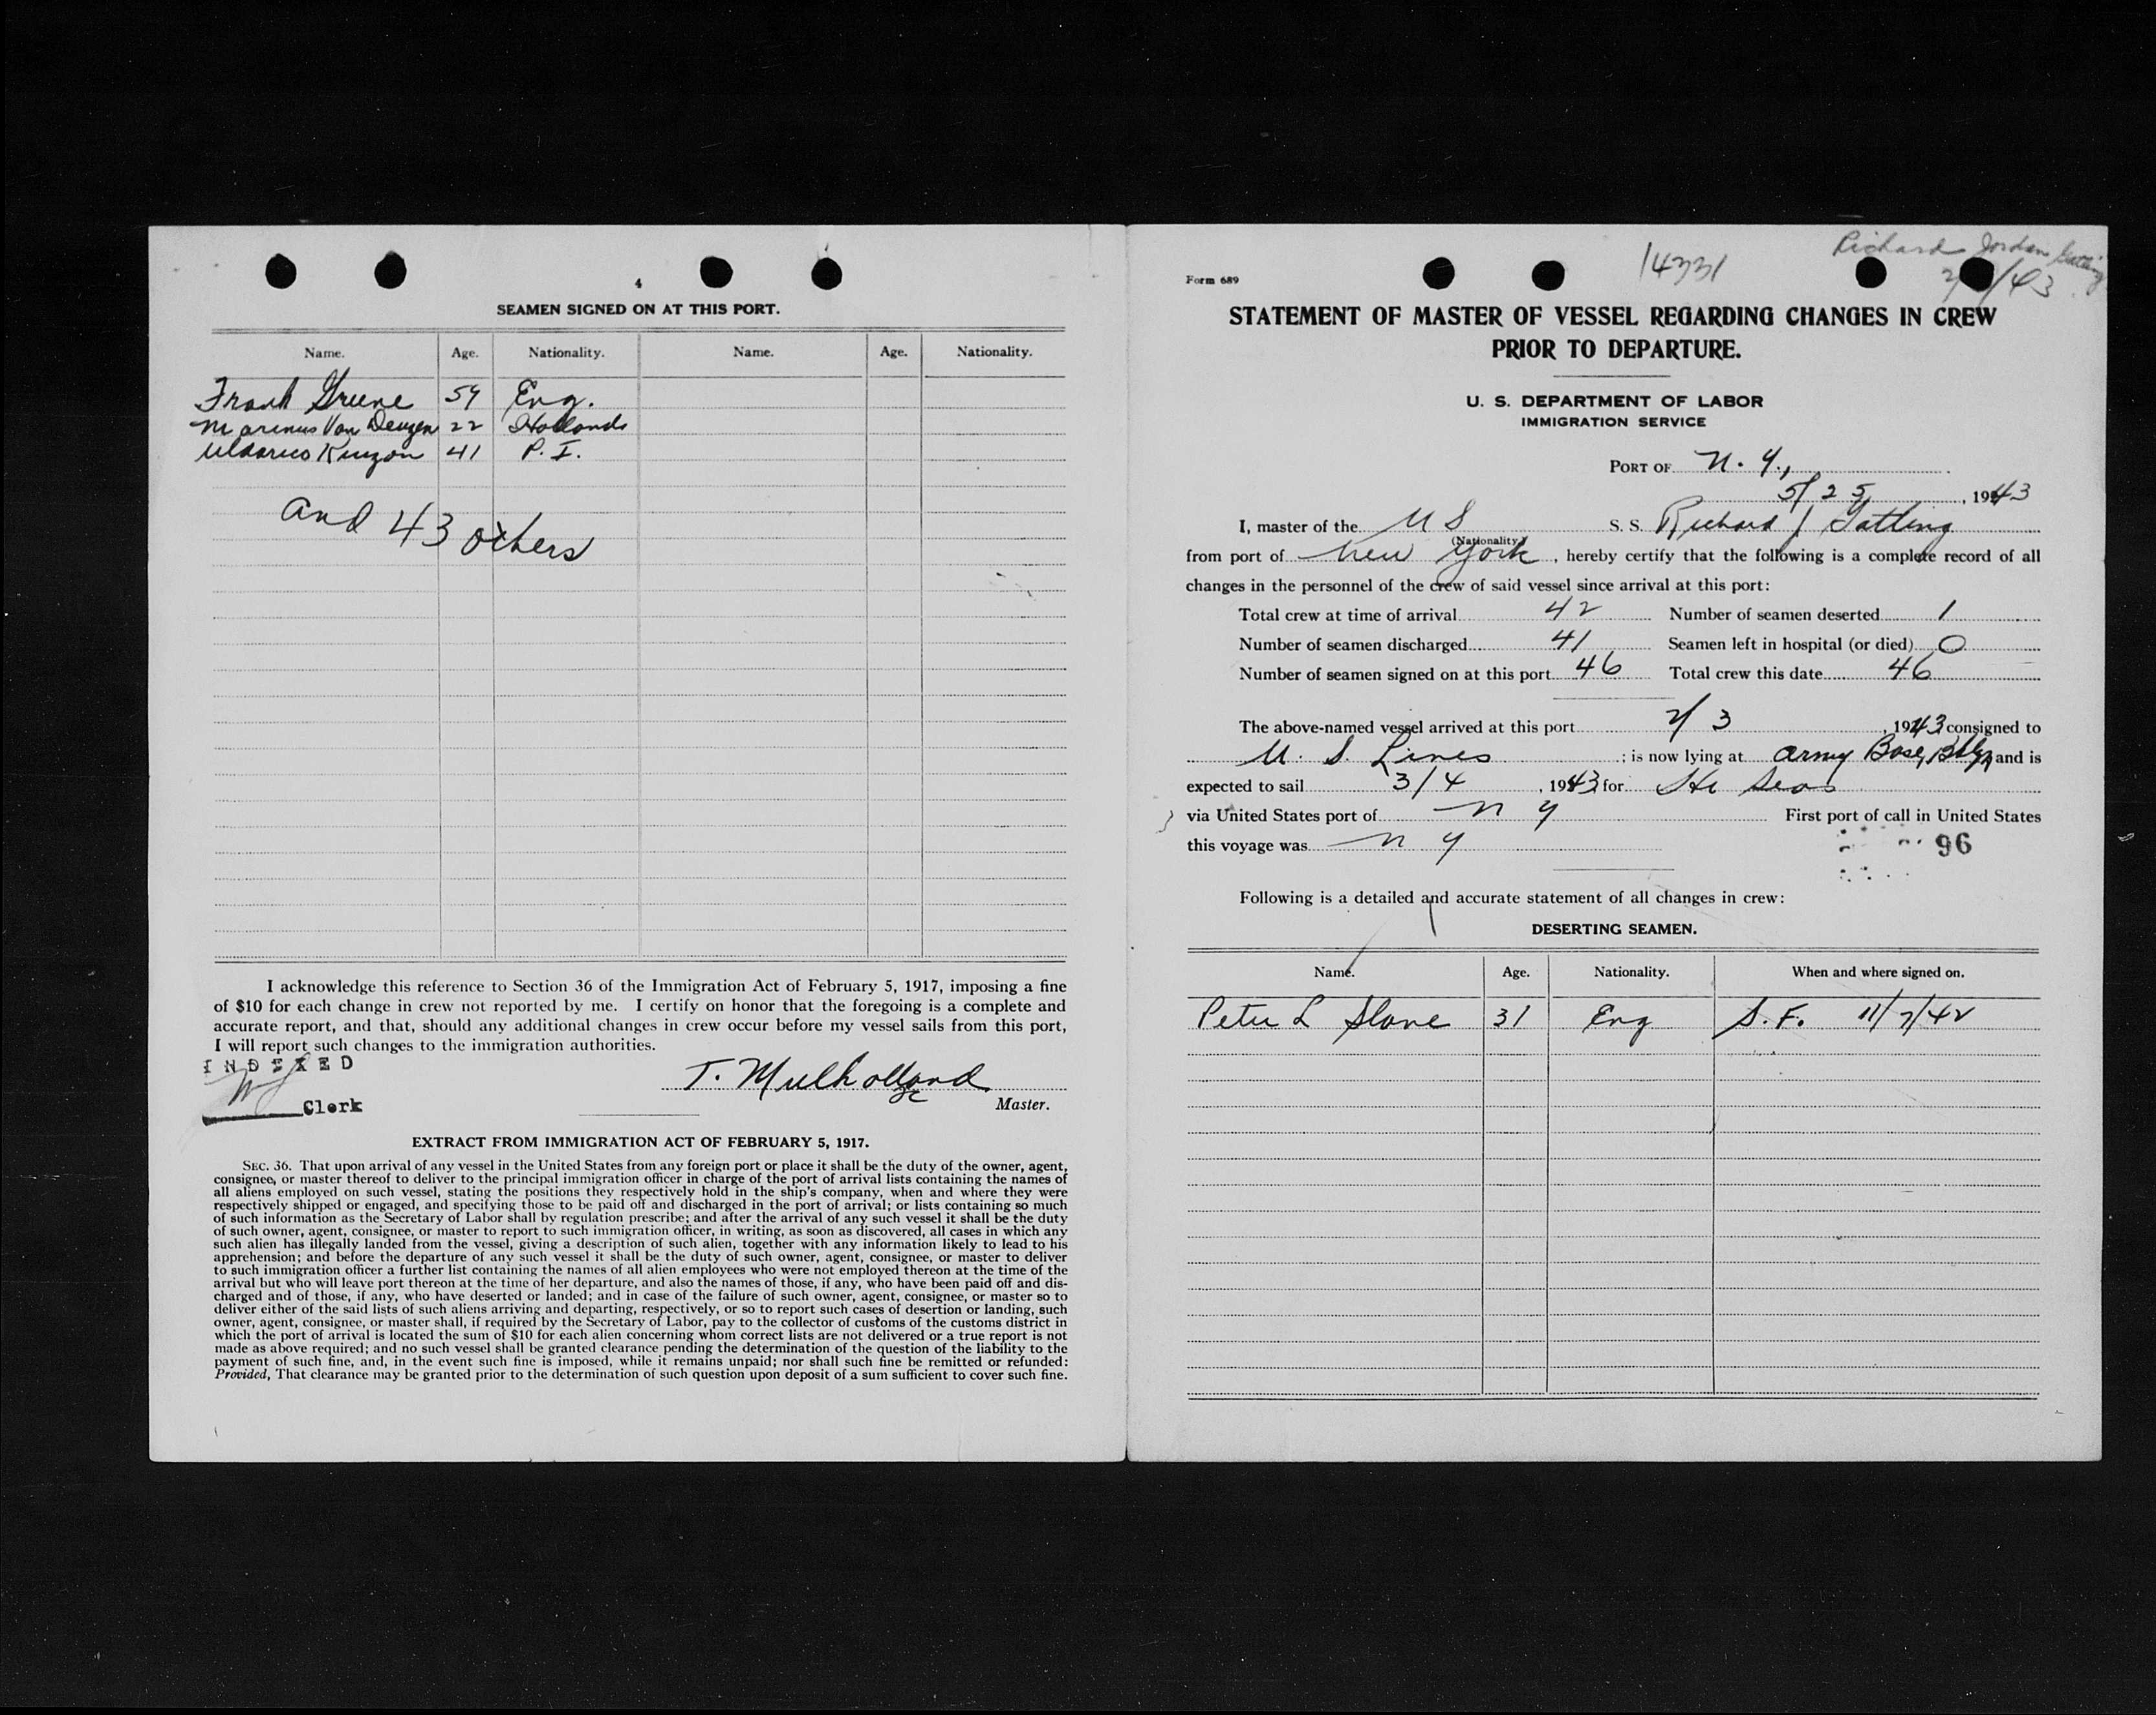 4
SEAMEN SIGNED ON AT THIS PORT.
Name. Age. Nationality. Name. Age. Nationality.
Frank Greene 59 Eng.
Marinus Van Deuzen 22 Holland
41 P. I.
and 43 others
I acknowledge this reference to Section 36 of the Immigration Act of February 5, 1917, imposing a fine
of $10 for each change in crew not reported by me. I certify on honor that the foregoing is a complete and
accurate report, and that, should any additional changes in crew occur before my vessel sails from this port,
I will report such changes to the immigration authorities.
INDEXED
T. Mulholland
Clerk
Master.
EXTRACT FROM IMMIGRATION ACT OF FEBRUARY 5, 1917.
SEC. 36. That upon arrival of any vessel in the United States from any foreign port or place it shall be the duty of the owner, agent,
consignee, or master thereof to deliver to the principal immigration officer in charge of the port of arrival lists containing the names of
all aliens employed on such vessel, stating the positions they respectively hold in the ship's company, when and where they were
respectively shipped or engaged, and specifying those to be paid off and discharged in the port of arrival; or lists containing so much
of such information as the Secretary of Labor shall by regulation prescribe; and after the arrival of any such vessel it shall be the duty
of such owner, agent, consignee, or master to report to such immigration officer, in writing, as soon as discovered, all cases in which any
such alien has illegally landed from the vessel, giving a description of such alien, together with any information likely to lead to his
apprehension; and before the departure of any such vessel it shall be the duty of such owner, agent, consignee, or master to deliver
to such immigration officer a further list containing the names of all alien employees who were not employed thereon at the time of the
arrival but who will leave port thereon at the time of her departure, and also the names of those, if any, who have been paid off and dis-
charged and of those, if any, who have deserted or landed; and in case of the failure of such owner, agent, consignee, or master so to
deliver either of the said lists of such aliens arriving and departing, respectively, or so to report such cases of desertion or landing, such
owner, agent, consignee, or master shall, if required by the Secretary of Labor, pay to the collector of customs of the customs district in
which the port of arrival is located the sum of $10 for each alien concerning whom correct lists are not delivered or a true report is not
made as above required; and no such vessel shall be granted clearance pending the determination of the question of the liability to the
payment of such fine, and, in the event such fine is imposed, while it remains unpaid; nor shall such fine be remitted or refunded:
Provided, That clearance may be granted prior to the determination of such question upon deposit of a sum sufficient to cover such fine.
Richard Jordan Gatling
Form 689 14331
STATEMENT OF MASTER OF VESSEL REGARDING CHANGES IN CREW
PRIOR TO DEPARTURE.
U. S. DEPARTMENT OF LABOR
IMMIGRATION SERVICE
PORT OF N. Y.,
5/25, 1943
I, master of the U S S. S. Richard J Gatling
(Nationality)
from port of New York, hereby certify that the following is a complete record of all
changes in the personnel of the crew of said vessel since arrival at this port:
Total crew at time of arrival 42 Number of seamen deserted 1
Number of seamen discharged 41 Seamen left in hospital (or died) 0
Number of seamen signed on at this port 46 Total crew this date 46
The above-named vessel arrived at this port 2/3, 1943 consigned to
U. S. Lines ; is now lying at Army Base, Bklyn and is
expected to sail 3/4, 1943, for Hi Seas
via United States port of N Y First port of call in United States
this voyage was N Y
96
Following is a detailed and accurate statement of all changes in crew:
DESERTING SEAMEN.
Name. Age. Nationality. When and where signed on.
Peter L Slane 31 Eng S. F. 11/7/42